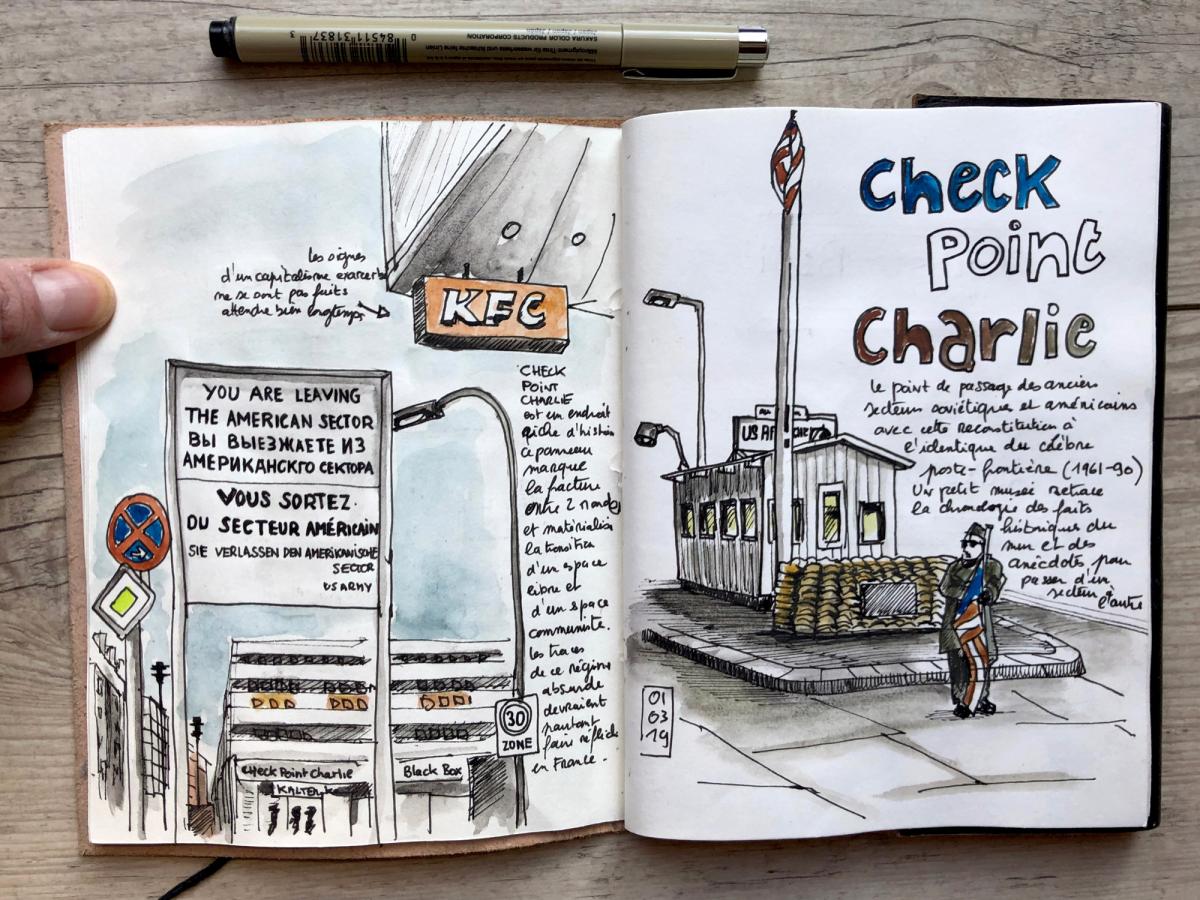 les signes
d'un capitalisme exacerbé
ne se sont pas faits
attendre bien longtemps
KFC
YOU ARE LEAVING
THE AMERICAN SECTOR
ВЫ ВЫЕЗЖАЕТЕ ИЗ
АМЕРИКАНСКГО СЕКТОРА
VOUS SORTEZ
DU SECTEUR AMÉRICAIN
SIE VERLASSEN DEN AMERIKANISCHE
SECTOR
US ARMY
CHECK
POINT
CHARLIE
est un endroit
riche d'histoire
ce panneau
marque
la fracture
entre 2 mondes
et matérialise
la transition
d'un espace
libre et
d'un espace
communiste.
les traces
de ce régime
absurde
devraient
pourtant
faire réfléchir
en France.
30
ZONE
Check Point Charlie
KALTER
Black Box
Check
Point
Charlie
le point de passage des anciens
secteurs soviétiques et américains
avec cette reconstitution à
l'identique du célèbre
poste-frontière (1961-90)
Un petit musée retrace
la chronologie des faits
historiques du
mur et des
anecdotes pour
passer d'un
secteur à
l'autre
01
03
19
0 84511 31837 3
SAKURA COLOR PRODUCTS CORPORATION